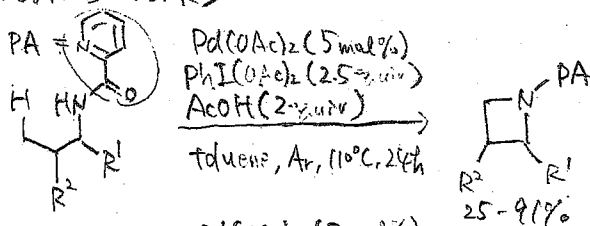 PA =
N
O
H HN
R¹
R²
Pd(OAc)₂ (5 mol%)
PhI(OAc)₂ (2.5 equiv)
AcOH (2 equiv)
toluene, Ar, 110°C, 24h
N PA
R² R¹
25-91%